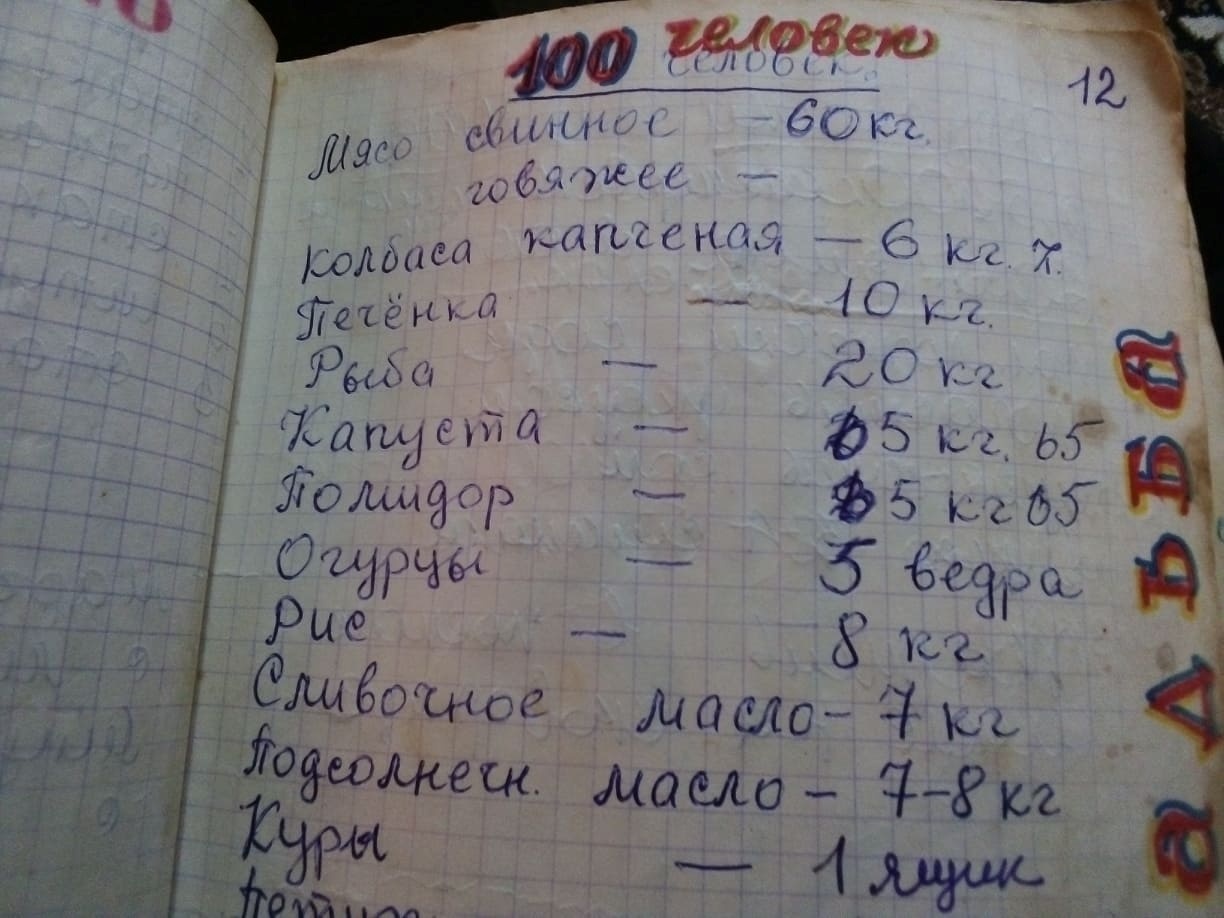 100 человек
человек.
12
Мясо свинное - 60 кг.
говяжее -
Колбаса капченая - 6 кг. 7.
Печёнка - 10 кг.
Рыба - 20 кг
Капуста - 65 кг. 65
Помидор - 65 кг 65
Огурцы - 5 ведра
Рис - 8 кг
Сливочное масло - 7 кг
Подсолнечн. масло - 7-8 кг
Куры - 1 ящик